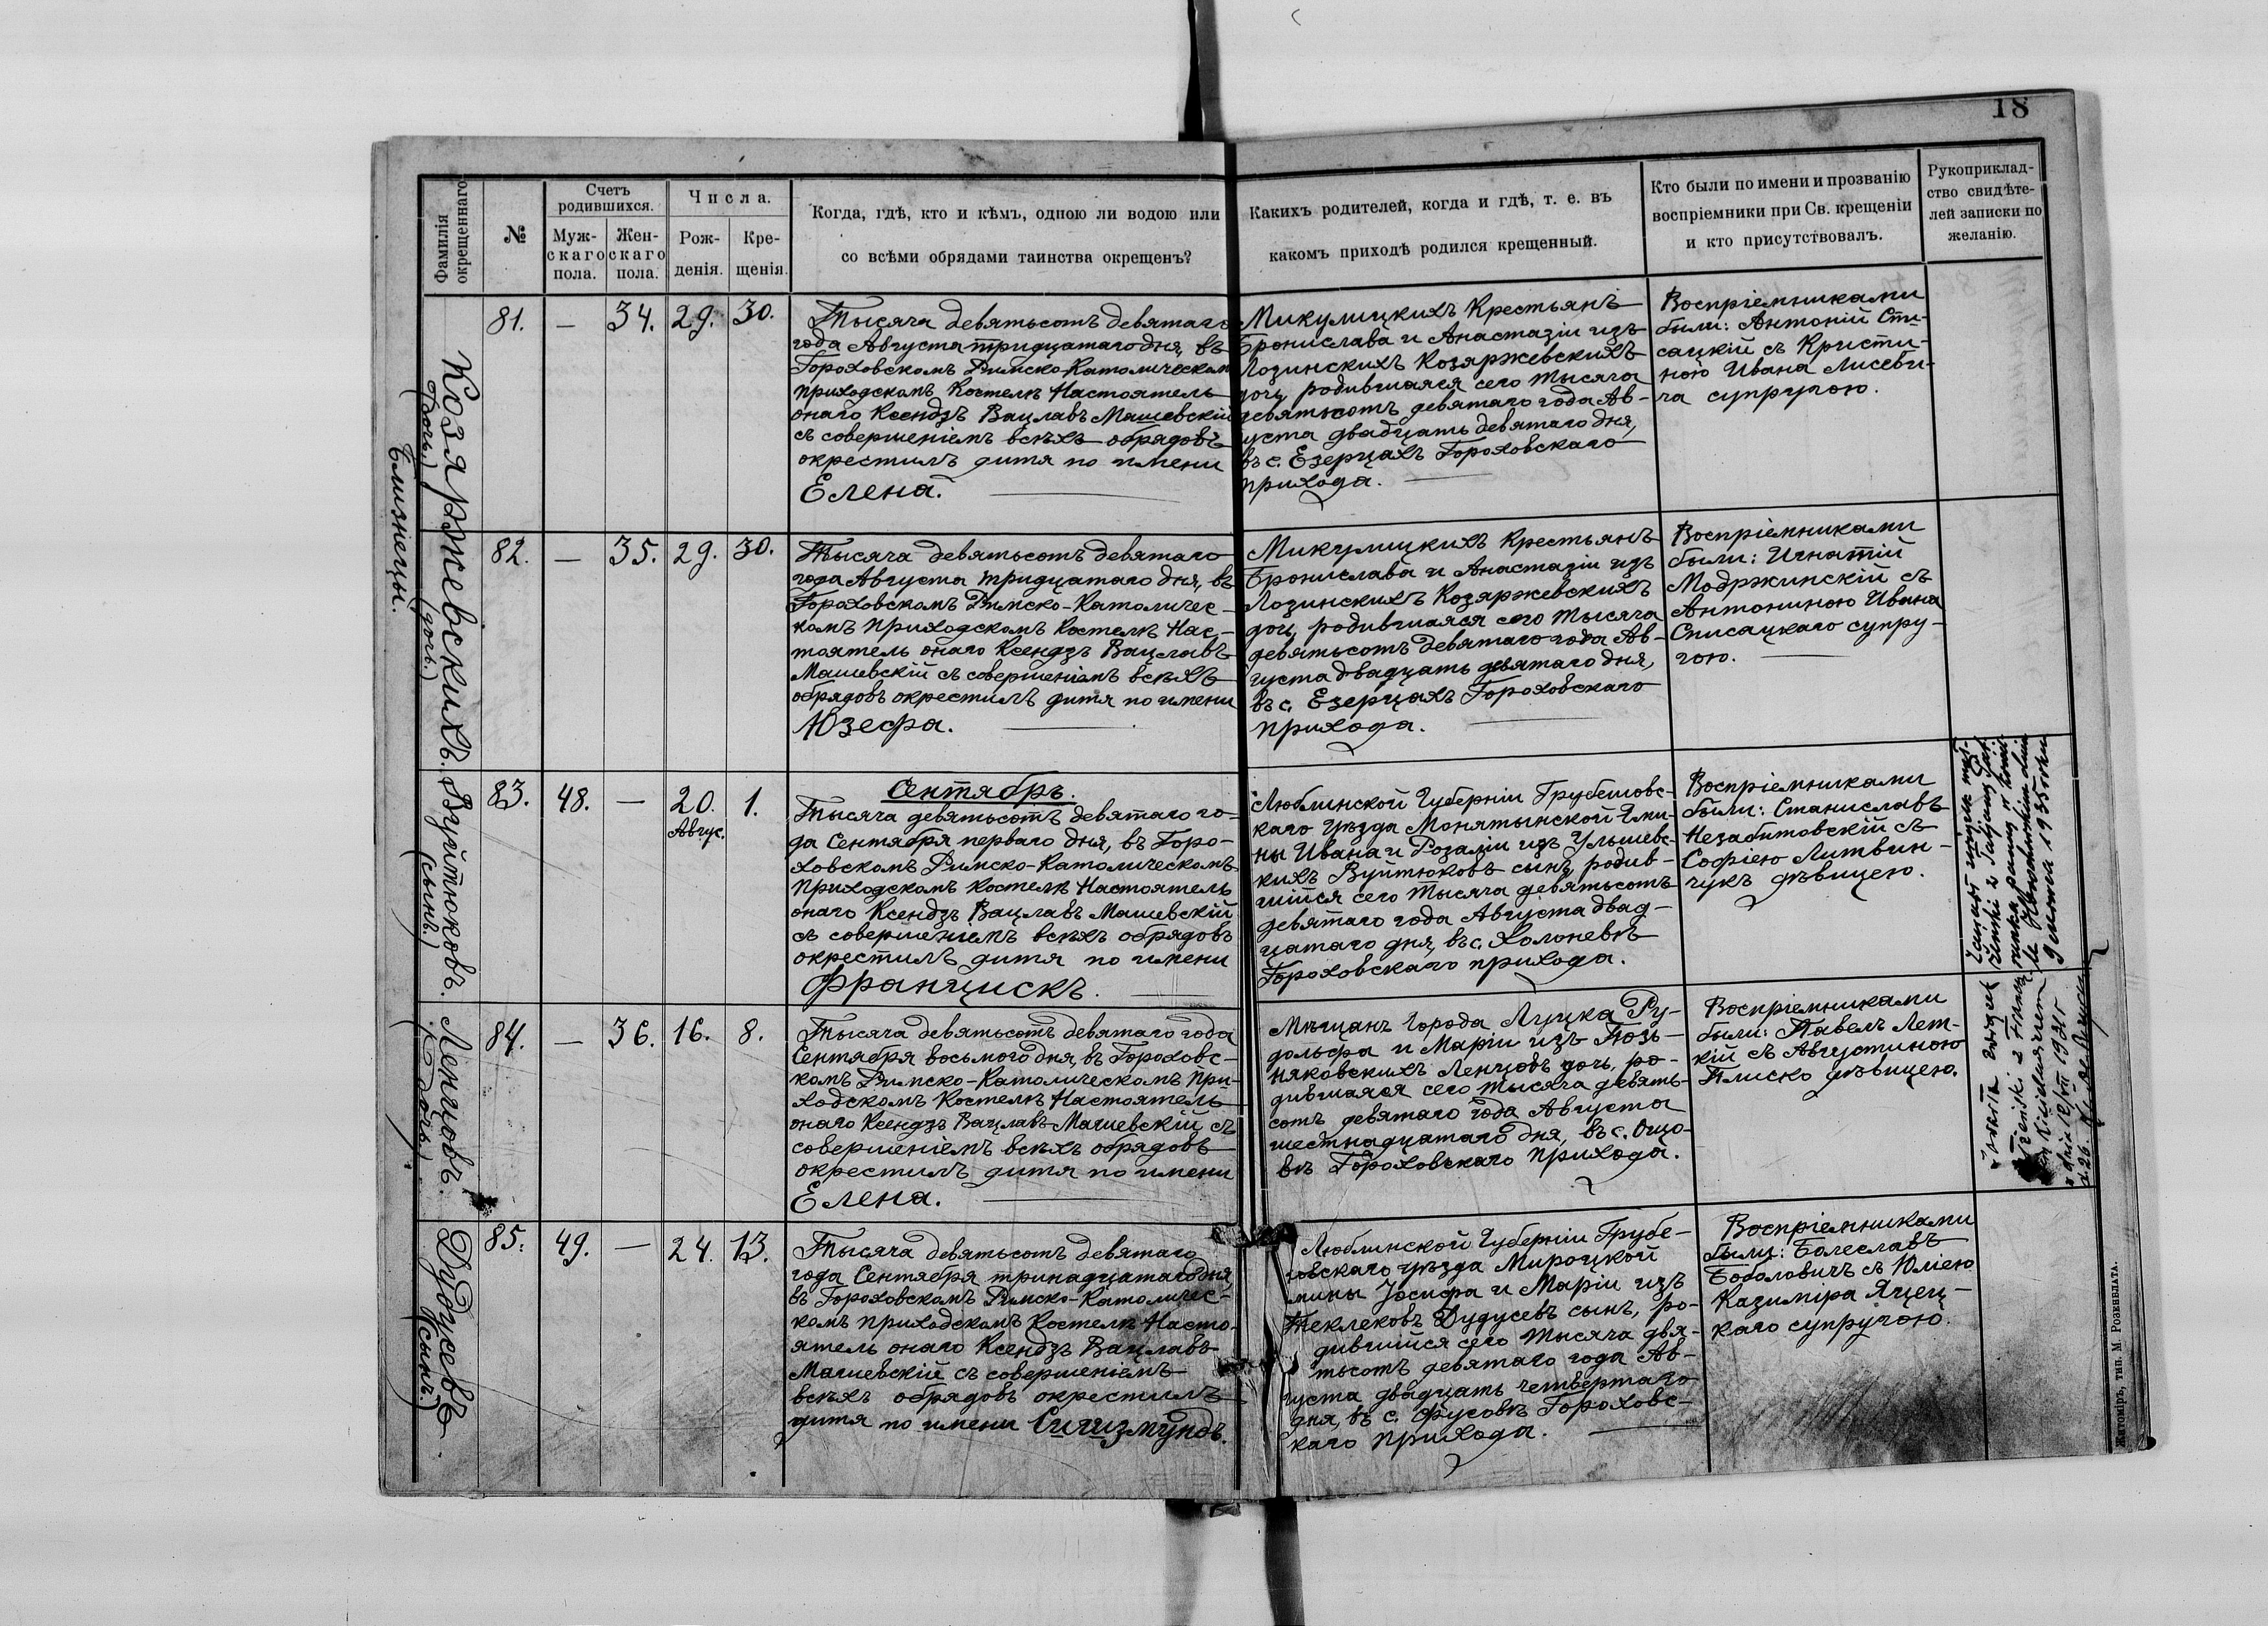 18
Фамилія
окрещеннаго
№
Счетъ
родившихся.
Муж-
скаго
пола.
Жен-
скаго
пола.
Числа.
Рож-
денія.
Кре-
щенія.
Когда, гдѣ, кто и кѣмъ, одною ли водою или
со всѣми обрядами таинства окрещенъ?
Какихъ родителей, когда и гдѣ, т. е. въ
какомъ приходѣ родился крещенный.
Кто были по имени и прозванію
воспріемники при Св. крещеніи
и кто присутствовалъ.
Рукоприклад-
ство свидѣте-
лей записки по
желанію.
Близнецы.
Козяржевскихъ.
(дочь)
(дочь)
81.
—
34.
29.
30.
Тысяча девятьсотъ девятаго
года Августа тридцатаго дня, въ
Гороховскомъ Римско-Католическом
приходскомъ Костелѣ Настоятель
онаго Ксендзъ Вацлавъ Машевскій
съ совершеніемъ всѣхъ обрядовъ
окрестилъ дитя по имени
Елена.
Микулицкихъ Крестьянъ
Бронислава и Анастазіи изъ
Лозинскихъ Козяржевскихъ
дочь, родившаяся сего тысяча
девятьсотъ девятаго года Ав-
густа двадцать девятаго дня,
въ с. Езерцахъ Гороховскаго
прихода.
Воспріемниками
были: Антоній Спи-
сацкій съ Кристи-
ною Ивана Лисеви-
ча супругою.
82.
—
35.
29.
30.
Тысяча девятьсотъ девятаго
года Августа тридцатаго дня, въ
Гороховскомъ Римско-Католичес-
комъ приходскомъ Костелѣ Нас-
тоятель онаго Ксендзъ Вацлавъ
Машевскій съ совершеніемъ всѣхъ
обрядовъ окрестилъ дитя по имени
Юзефа.
Микулицкихъ Крестьянъ
Бронислава и Анастазіи изъ
Лозинскихъ Козяржевскихъ
дочь, родившаяся сего тысяча
девятьсотъ девятаго года Ав-
густа двадцать девятаго дня,
въ с. Езерцахъ Гороховскаго
прихода.
Воспріемниками
были: Игнатій
Модржинскій съ
Антониною Ивана
Списацкаго супру-
гою.
Вуйтюковъ.
(сынъ)
83.
48.
—
20.
Авгус.
1.
Сентябрь.
Тысяча девятьсотъ девятаго го-
да Сентября перваго дня, въ Горо-
ховскомъ Римско-Католическомъ
приходскомъ Костелѣ Настоятель
онаго Ксендзъ Вацлавъ Машевскій
съ совершеніемъ всѣхъ обрядовъ
окрестилъ дитя по имени
Францискъ.
Люблинской Губерніи Грубешовс-
каго Уѣзда Монятынской Гми-
ны Ивана и Розаліи изъ Улышевс-
кихъ Вуйтюковъ сынъ, родив-
шійся сего тысяча девятьсотъ
девятаго года Августа двад-
цатаго дня, въ с. Холоневѣ
Гороховскаго прихода.
Воспріемниками
были: Станиславъ
Незабитовскій съ
Софіею Литвин-
чукъ дѣвицею.
1935 roku
Ленцовъ.
(дочь)
84.
—
36.
16.
8.
Тысяча девятьсотъ девятаго года
Сентября восьмого дня, въ Гороховс-
комъ Римско-Католическомъ При-
ходскомъ Костелѣ Настоятель
онаго Ксендзъ Вацлавъ Машевскій съ
совершеніемъ всѣхъ обрядовъ
окрестилъ дитя по имени
Елена.
Мѣщанъ города Луцка Ру-
дольфа и Маріи изъ Позь-
няковскихъ Ленцовъ дочь, ро-
дившаяся сего тысяча девять-
сотъ девятаго года Августа
шестнадцатаго дня, въ с. Ощо-
вѣ Гороховскаго прихода.
Воспріемниками
были: Павелъ Лет-
кій съ Августиною
Плиско дѣвицею.
Дудусевъ
(сынъ)
85.
49.
—
24.
13.
Тысяча девятьсотъ девятаго
года Сентября тринадцатаго дня
въ Гороховскомъ Римско-Католичес-
комъ приходскомъ Костелѣ Насто-
ятель онаго Ксендзъ Вацлавъ
Машевскій съ совершеніемъ
всѣхъ обрядовъ окрестилъ
дитя по имени Сигизмундъ.
Люблинской Губерніи Грубе-
шовскаго уѣзда Мироцкой
гмины Іосифа и Маріи изъ
Теклековъ Дудусевъ сынъ, ро-
дившійся сего тысяча девя-
тьсотъ девятаго года Ав-
густа двадцать четвертаго
дня, въ с. Фусовѣ Гороховс-
каго прихода.
Воспріемниками
были: Болеславъ
Боболовичъ съ Юліею
Казиміра Яцец-
каго супругою.
Житоміръ, тип. М. Розенблата.